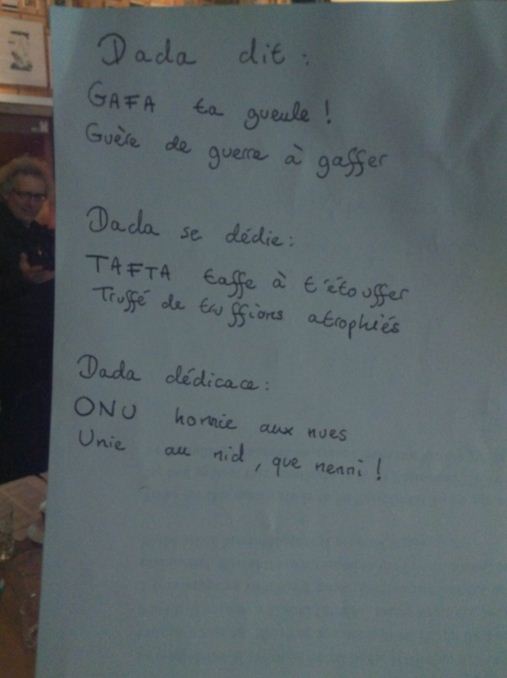 Dada dit :
GAFA ta gueule !
Guère de guerre à gaffer
Dada se dédie :
TAFTA taffe à t'étouffer
Truffé de truffions atrophiés
Dada dédicace :
ONU honnie aux nues
Unie au nid, que nenni !